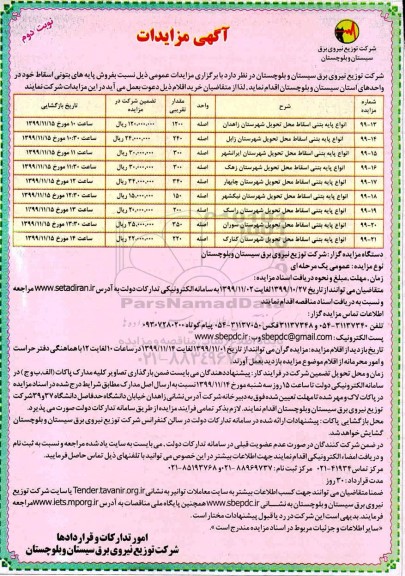 نوبت دوم
آگهی مزایدات
شرکت توزیع نیروی برق
سیستان وبلوچستان
شرکت توزیع نیروی برق سیستان و بلوچستان در نظر دارد با برگزاری مزایدات عمومی ذیل نسبت بفروش پایه های بتونی اسقاط خود در
واحدهای استان سیستان وبلوچستان اقدام نماید. لذا از متقاضیان خرید اقلام ذیل دعوت بعمل می آید در این مزایدات شرکت نمایند
شماره مزایده شرح واحد مقدار تقریبی تضمین شرکت در مزایده تاریخ بازگشایی
۹۹-۱۳ انواع پایه بتنی اسقاط محل تحویل شهرستان زاهدان اصله ۱۲۰۰ ۱۲۰,۰۰۰,۰۰۰ ریال ساعت ۱۰ مورخ ۱۳۹۹/۱۱/۱۵
۹۹-۱۴ انواع پایه بتنی اسقاط محل تحویل شهرستان زابل اصله ۲۴۰ ۲۴,۰۰۰,۰۰۰ ریال ساعت ۱۰:۳۰ مورخ ۱۳۹۹/۱۱/۱۵
۹۹-۱۵ انواع پایه بتنی اسقاط محل تحویل شهرستان ایرانشهر اصله ۳۰۰ ۳۰,۰۰۰,۰۰۰ ریال ساعت ۱۱ مورخ ۱۳۹۹/۱۱/۱۵
۹۹-۱۶ انواع پایه بتنی اسقاط محل تحویل شهرستان زهک اصله ۳۰۰ ۳۰,۰۰۰,۰۰۰ ریال ساعت ۱۱:۳۰ مورخ ۱۳۹۹/۱۱/۱۵
۹۹-۱۷ انواع پایه بتنی اسقاط محل تحویل شهرستان چابهار اصله ۳۴۰ ۳۴,۰۰۰,۰۰۰ ریال ساعت ۱۲ مورخ ۱۳۹۹/۱۱/۱۵
۹۹-۱۸ انواع پایه بتنی اسقاط محل تحویل شهرستان نیکشهر اصله ۱۵۰ ۱۵,۰۰۰,۰۰۰ ریال ساعت ۱۲:۳۰ مورخ ۱۳۹۹/۱۱/۱۵
۹۹-۱۹ انواع پایه بتنی اسقاط محل تحویل شهرستان راسک اصله ۲۰۰ ۲۰,۰۰۰,۰۰۰ ریال ساعت ۱۳ مورخ ۱۳۹۹/۱۱/۱۵
۹۹-۲۰ انواع پایه بتنی اسقاط محل تحویل شهرستان سوران اصله ۳۵۰ ۳۵,۰۰۰,۰۰۰ ریال ساعت ۱۳:۳۰ مورخ ۱۳۹۹/۱۱/۱۵
۹۹-۲۱ انواع پایه بتنی اسقاط محل تحویل شهرستان کنارک اصله ۲۲۰ ۲۲,۰۰۰,۰۰۰ ریال ساعت ۱۴ مورخ ۱۳۹۹/۱۱/۱۵
دستگاه مزایده گزار: شرکت توزیع نیروی برق سیستان وبلوچستان
نوع مزایده: عمومی یک مرحله ای
زمان، مهلت، مبلغ و نحوه دریافت اسناد مزایده:
متقاضیان می توانند از تاریخ ۱۳۹۹/۱۰/۲۷ لغایت ۱۳۹۹/۱۱/۰۲ به سامانه الکترونیکی تدارکات دولت به آدرس www.setadiran.ir مراجعه
و نسبت به دریافت اسناد مناقصه اقدام نمایند
اطلاعات تماس مزایده گزار:
تلفن ۳۱۱۳۷۳۴۰-۰۵۴ و ۳۱۱۳۷۳۴۸ فکس ۳۱۱۳۷۰۵۰-۰۵۴ پیام کوتاه ۰۹۳۰۷۲۸۰۲۰۰
پست الکترونیک: sbepdc@gmail.com وب: www.sbepdc.ir
تاریخ بازدید از اقلام مزایده: مزایده گران می توانند از تاریخ ۱۳۹۹/۱۱/۰۱ لغایت ۱۳۹۹/۱۱/۱۳ در ساعات ۱۰ لغایت ۱۲ با هماهنگی دفتر حراست
و امور محرمانه از اقلام موضوع مزایده بازدید بعمل آورند.
زمان و محل تحویل تضمین شرکت در فرایند کار: پیشنهاددهندگان می بایست ضمن بارگذاری تصاویر کلیه مدارک پاکات (الف، ب و ج) در
سامانه الکترونیکی دولت تا ساعت ۱۵ روز سه شنبه مورخ ۱۳۹۹/۱۱/۱۴ نسبت به ارسال اصل مدارک مطابق شرایط درج شده در اسناد مزایده
در پاکات لاک و مهر شده تا مهلت تعیین شده فوق به دبیرخانه شرکت آدرس نشانی زاهدان خیابان دانشگاه حدفاصل دانشگاه ۳۷ و ۳۹ شرکت
توزیع نیروی برق سیستان وبلوچستان اقدام نمایند. لازم بذکر تمامی فرایند مزایده از طریق سامانه تدارکات دولت صورت می پذیرد.
محل بازگشایی پاکات: پیشنهادات ارائه شده در سامانه تدارکات دولت در سالن کنفرانس شرکت توزیع نیروی برق سیستان وبلوچستان
گشایش خواهد شد.
در ضمن شرکت کنندگان در صورت عدم عضویت قبلی در سامانه تدارکات دولت، می بایست به سایت یاد شده مراجعه و نسبت به ثبت نام
و دریافت امضاء الکترونیکی اقدام نمایند جهت اطلاعات بیشتر در این خصوص می توانید با تلفنهای ذیل تماس حاصل فرمایید.
مرکز تماس ۴۱۹۳۴-۰۲۱ مرکز ثبت نام: ۸۸۹۶۹۷۳۷-۰۲۱ و ۸۵۱۹۳۷۶۸-۰۲۱
مدت قرارداد: ۳۰ روز
ضمنا متقاضیان می توانند جهت کسب اطلاعات بیشتر به سایت معاملات توانیر به نشانی Tender.tavanir.org.ir یا سایت شرکت توزیع
نیروی برق سیستان وبلوچستان به نشانی www.sbepdc.ir همچنین پایگاه ملی مناقصات به آدرس www.iets.mporg.ir مراجعه
فرمایند. بدیهی است این شرکت در رد یا قبول پیشنهادات مختار است.
«سایر اطلاعات و جزئیات مربوط در اسناد مزایده مندرج است»
امور تدارکات و قراردادها
شرکت توزیع نیروی برق سیستان و بلوچستان